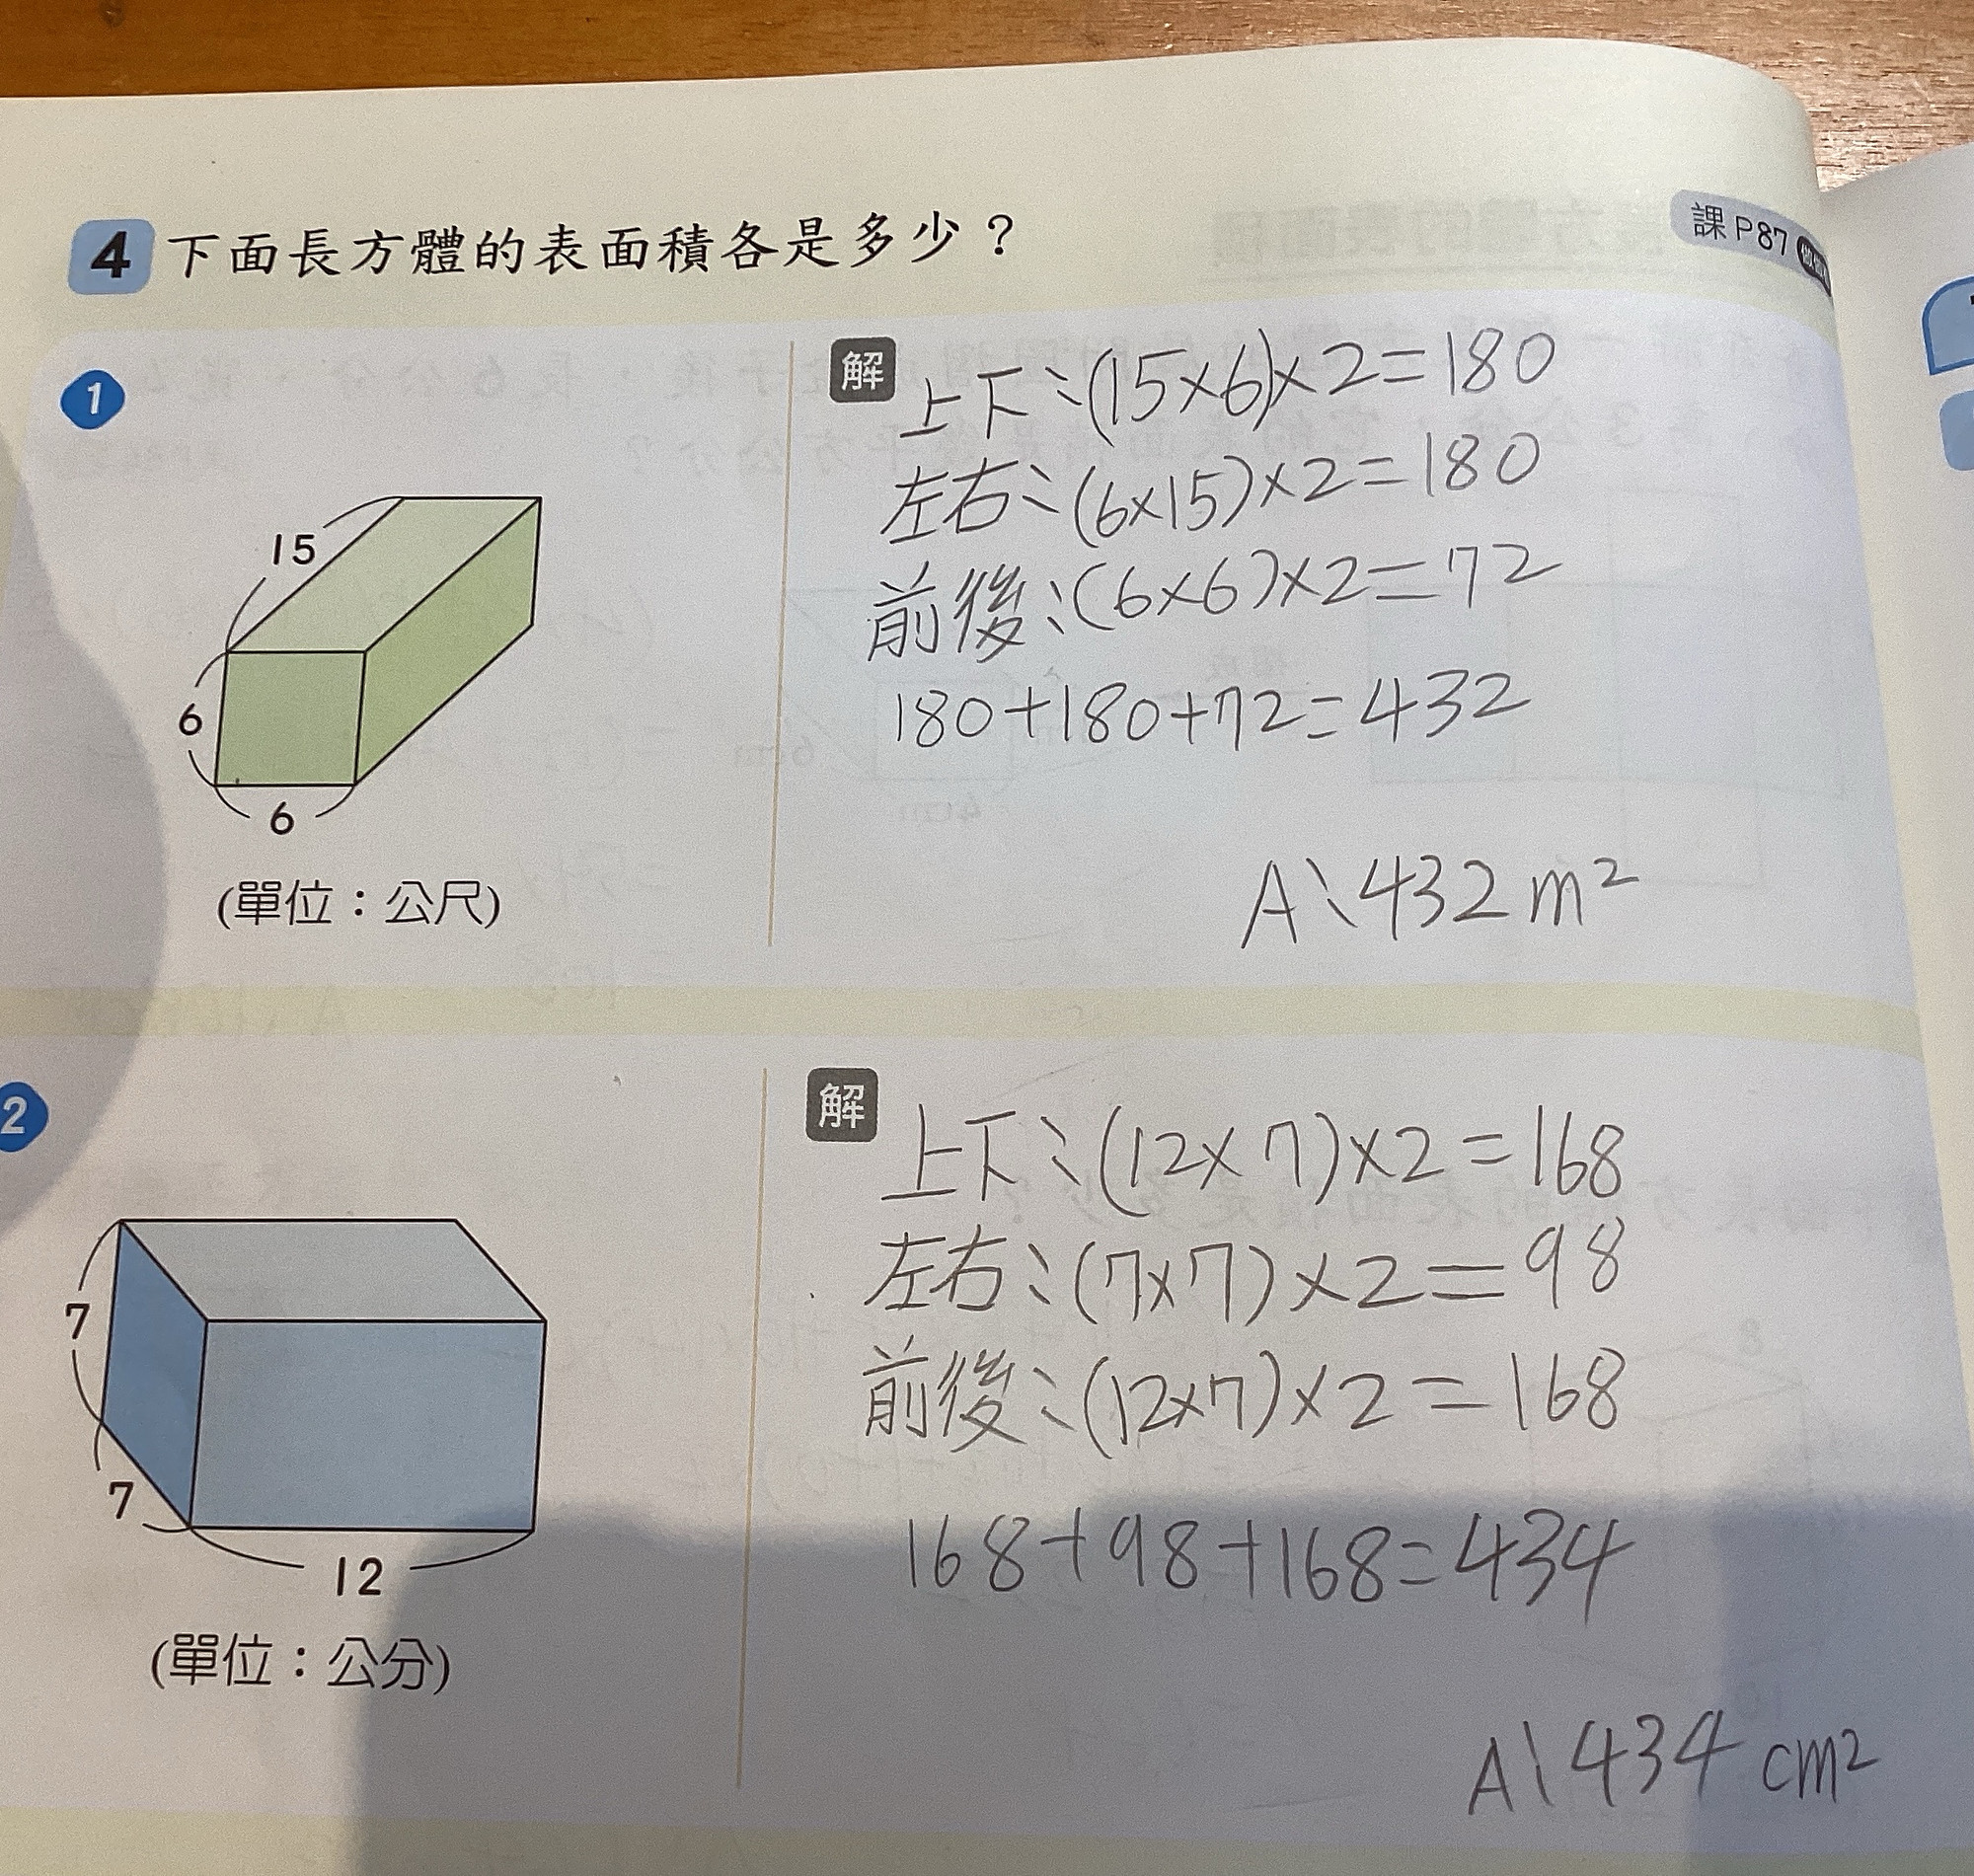 4 下面長方體的表面積各是多少？
課P87
1
15
6
6
(單位：公尺)
解
上下：(15×6)×2=180
左右：(6×15)×2=180
前後：(6×6)×2=72
180+180+72=432
A\432 m²
2
7
7
12
(單位：公分)
解
上下：(12×7)×2=168
左右：(7×7)×2=98
前後：(12×7)×2=168
168+98+168=434
A\434 cm²